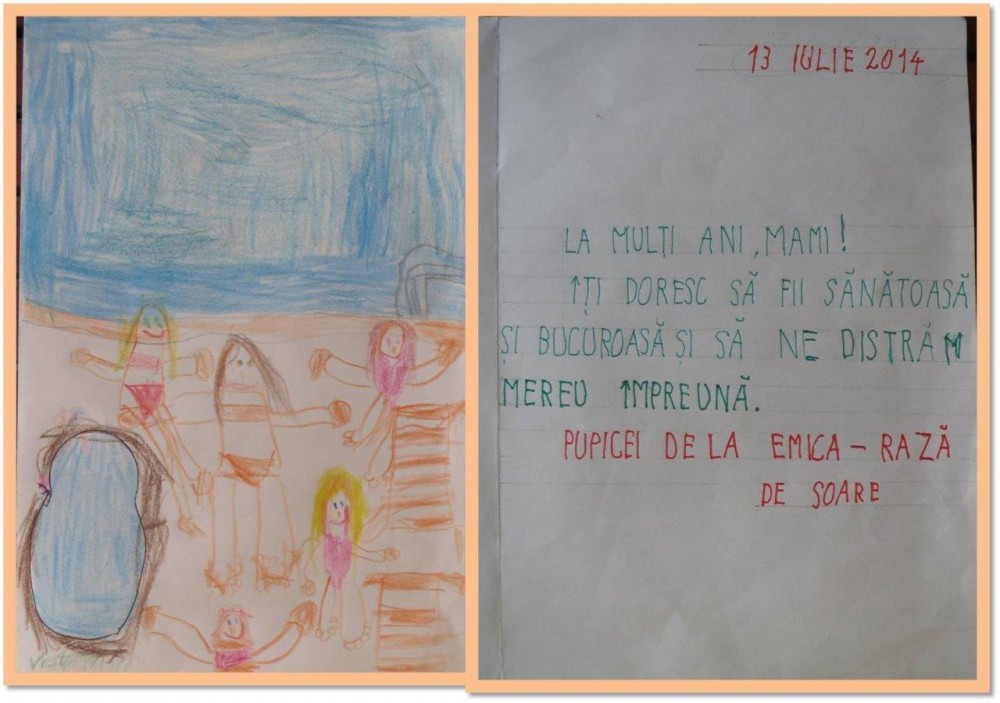 13 IULIE 2014
LA MULȚI ANI, MAMI!
ÎȚI DORESC SĂ FII SĂNĂTOASĂ
ȘI BUCUROASĂ ȘI SĂ NE DISTRĂM
MEREU ÎMPREUNĂ.
PUPICEI DE LA EMICA – RAZĂ
DE SOARE